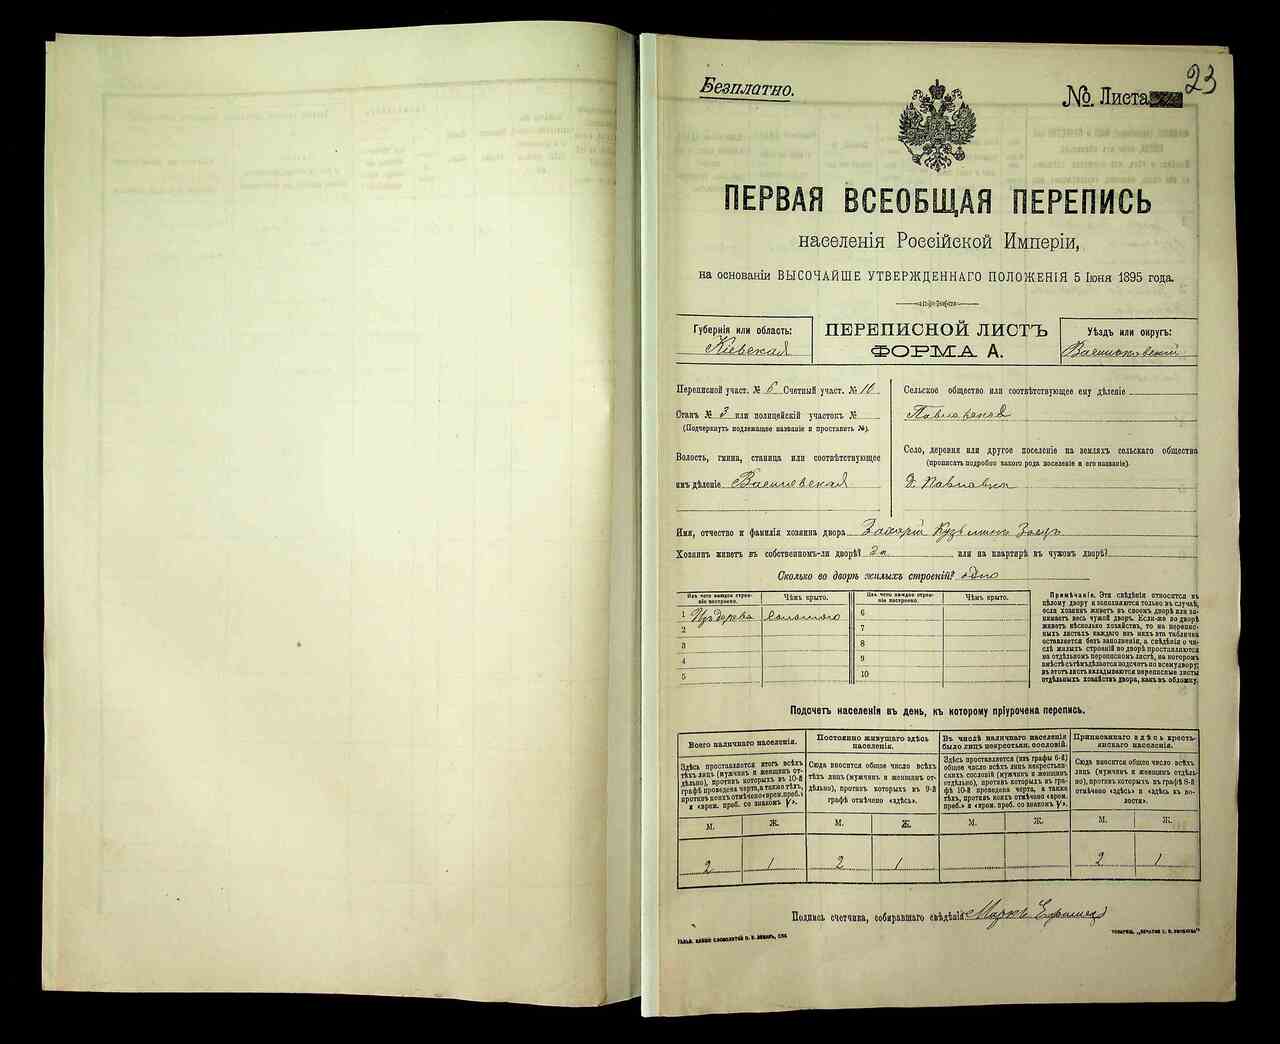 Безплатно.
№ Листа
23
ПЕРВАЯ ВСЕОБЩАЯ ПЕРЕПИСЬ
населенія Россійской Имперіи,
на основаніи ВЫСОЧАЙШЕ УТВЕРЖДЕННАГО ПОЛОЖЕНІЯ 5 Іюня 1895 года.
Губернія или область:
Кіевская
ПЕРЕПИСНОЙ ЛИСТЪ
ФОРМА А.
Уѣздъ или округъ:
Васильковскій
Переписной участ. № 6 Счетный участ. № 10
Станъ № 3 или полицейскій участокъ №
(Подчеркнуть подлежащее названіе и проставить №).
Волость, гмина, станица или соотвѣтствующее
имъ дѣленіе
Сельское общество или соотвѣтствующее ему дѣленіе
Павловское
Село, деревня или другое поселеніе на земляхъ сельскаго общества
(прописать подробно какого рода поселеніе и его названіе).
Д. Павловка
Имя, отчество и фамилія хозяина двора Захарій Кузьминъ Заецъ
Хозяинъ живетъ въ собственномъ-ли дворѣ? да или на квартирѣ въ чужомъ дворѣ?
Сколько во дворѣ жилыхъ строеній? одно
Изъ чего каждое строеніе построено.
Чѣмъ крыто.
Изъ чего каждое строеніе построено.
Чѣмъ крыто.
1 Изъ дерева соломою 6
2 7
3 8
4 9
5 10
Примѣчаніе. Эти свѣдѣнія относятся къ
цѣлому двору и заполняются только въ случаѣ,
если хозяинъ живетъ въ своемъ дворѣ или занимаетъ
весь чужой дворъ. Если-же во дворѣ
живетъ нѣсколько хозяйствъ, то на переписныхъ
листахъ каждаго изъ нихъ эта табличка
оставляется безъ заполненія, а свѣдѣнія о числѣ
жилыхъ строеній во дворѣ проставляются
на отдѣльномъ переписномъ листѣ, на которомъ
вмѣстѣ съ тѣмъ дѣлается подсчетъ по всему двору;
въ этотъ листъ вкладываются переписные листы
отдѣльныхъ хозяйствъ двора, какъ въ обложку.
Подсчетъ населенія въ день, къ которому пріурочена перепись.
Всего наличнаго населенія.
Здѣсь проставляется итогъ всѣхъ
тѣхъ лицъ (мужчинъ и женщинъ отдѣльно),
противъ которыхъ въ 10-й
графѣ проведена черта, а также тѣхъ,
противъ коихъ отмѣчено «врем. преб.»
и «врем. преб. со знакомъ V».
Постоянно живущаго здѣсь
населенія.
Сюда вносится общее число всѣхъ
тѣхъ лицъ (мужчинъ и женщинъ отдѣльно),
противъ которыхъ въ 9-й
графѣ отмѣчено «здѣсь».
Въ числѣ наличнаго населенія
было лицъ некрестьян. сословій.
Здѣсь проставляется (изъ графы 6-й)
общее число всѣхъ лицъ некрестьянскихъ
сословій (мужчинъ и женщинъ
отдѣльно), противъ которыхъ въ графѣ
10-й проведена черта, а также
тѣхъ, противъ коихъ отмѣчено «врем.
преб.» и «врем. преб. со знакомъ V».
Приписаннаго здѣсь крестьянскаго
населенія.
Сюда вносится общее число всѣхъ
лицъ (мужчинъ и женщинъ отдѣльно),
противъ которыхъ въ графѣ 8-й
отмѣчено «здѣсь» и «здѣсь въ волости».
М. Ж. М. Ж. М. Ж. М. Ж.
2 1 2 1 2 1
Подпись счетчика, собиравшаго свѣдѣнія Маркъ